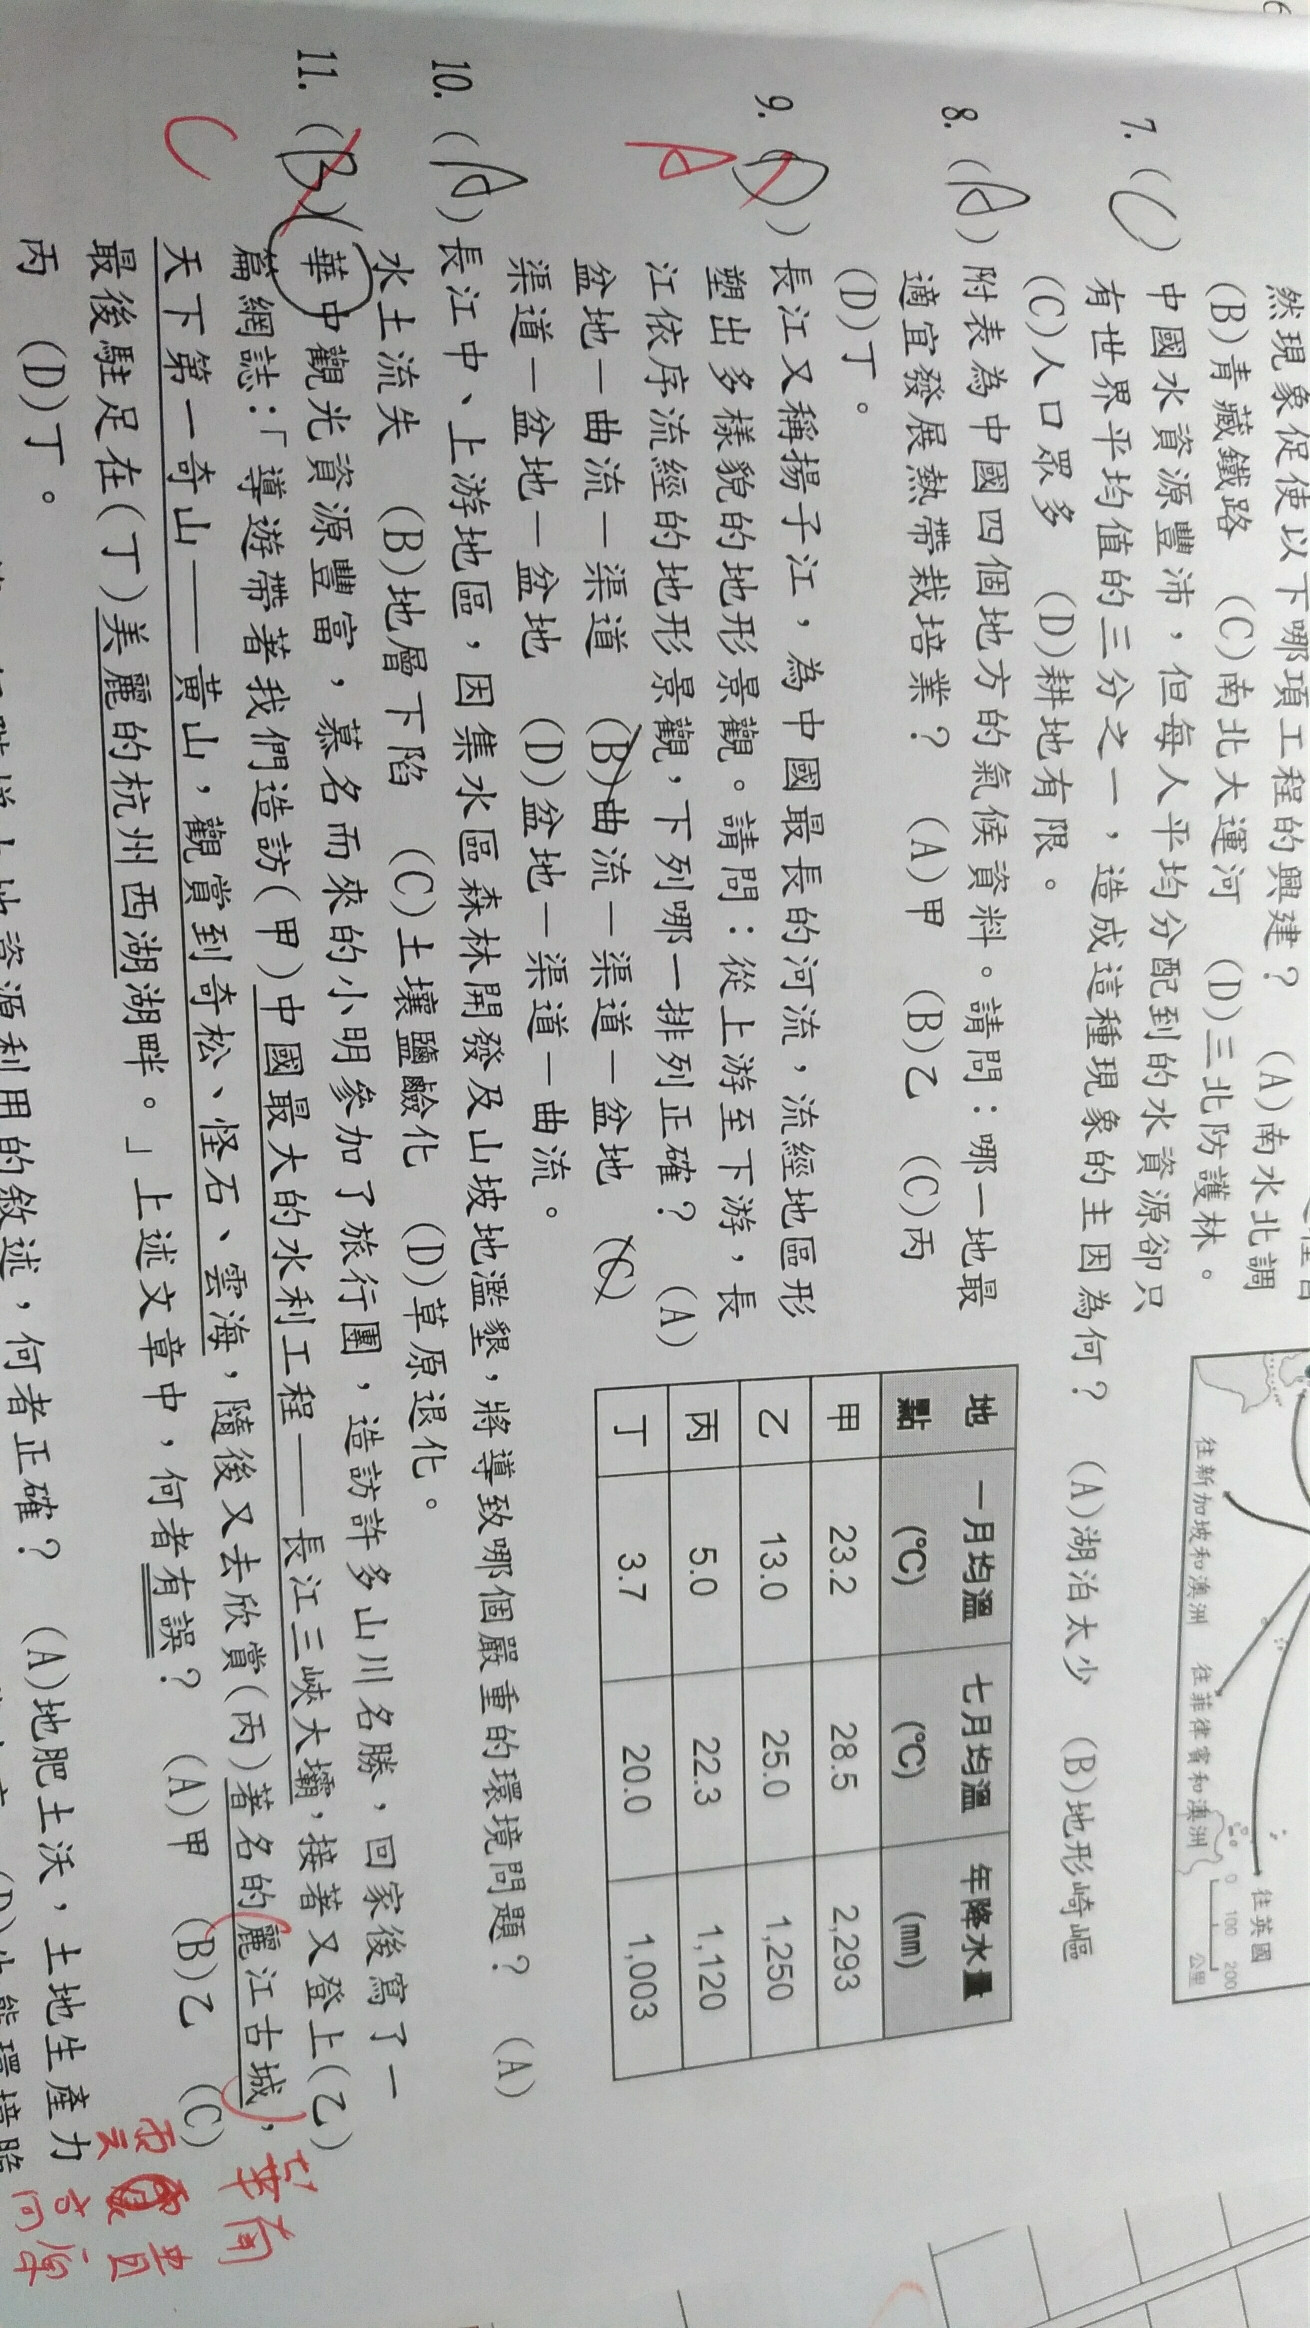 然現象促使以下哪項工程的興建? (A)南水北調
(B)青藏鐵路 (C)南北大運河 (D)三北防護林。
7. (C) 中國水資源豐沛，但每人平均分配到的水資源卻只
有世界平均值的三分之一，造成這種現象的主因為何? (A)湖泊太少 (B)地形崎嶇
(C)人口眾多 (D)耕地有限。
往新加坡和澳洲
往菲律賓和澳洲
往英國
0 100 200
公里
8. (A) 附表為中國四個地方的氣候資料。請問：哪一地最
適宜發展熱帶栽培業? (A)甲 (B)乙 (C)丙
(D)丁。
地點 一月均溫(℃) 七月均溫(℃) 年降水量(mm)
甲 23.2 28.5 2,293
乙 13.0 25.0 1,250
丙 5.0 22.3 1,120
丁 3.7 20.0 1,003
9. (D) 長江又稱揚子江，為中國最長的河流，流經地區形
A
塑出多樣貌的地形景觀。請問：從上游至下游，長
江依序流經的地形景觀，下列哪一排列正確? (A)
盆地—曲流—渠道 (B)曲流—渠道—盆地 (C)
渠道—盆地—盆地 (D)盆地—渠道—曲流。
10. (A) 長江中、上游地區，因集水區森林開發及山坡地濫墾，將導致哪個嚴重的環境問題? (A)
水土流失 (B)地層下陷 (C)土壤鹽鹼化 (D)草原退化。
11. (B) 華中觀光資源豐富，慕名而來的小明參加了旅行團，造訪許多山川名勝，回家後寫了一
C
篇網誌：「導遊帶著我們造訪(甲)中國最大的水利工程——長江三峽大壩，接著又登上(乙)
天下第一奇山——黃山，觀賞到奇松、怪石、雲海，隨後又去欣賞(丙)著名的麗江古城，
最後駐足在(丁)美麗的杭州西湖湖畔。」上述文章中，何者有誤? (A)甲 (B)乙 (C)
丙 (D)丁。
華南
雲貴
資源利用的敘述，何者正確? (A)地肥土沃，土地生產力